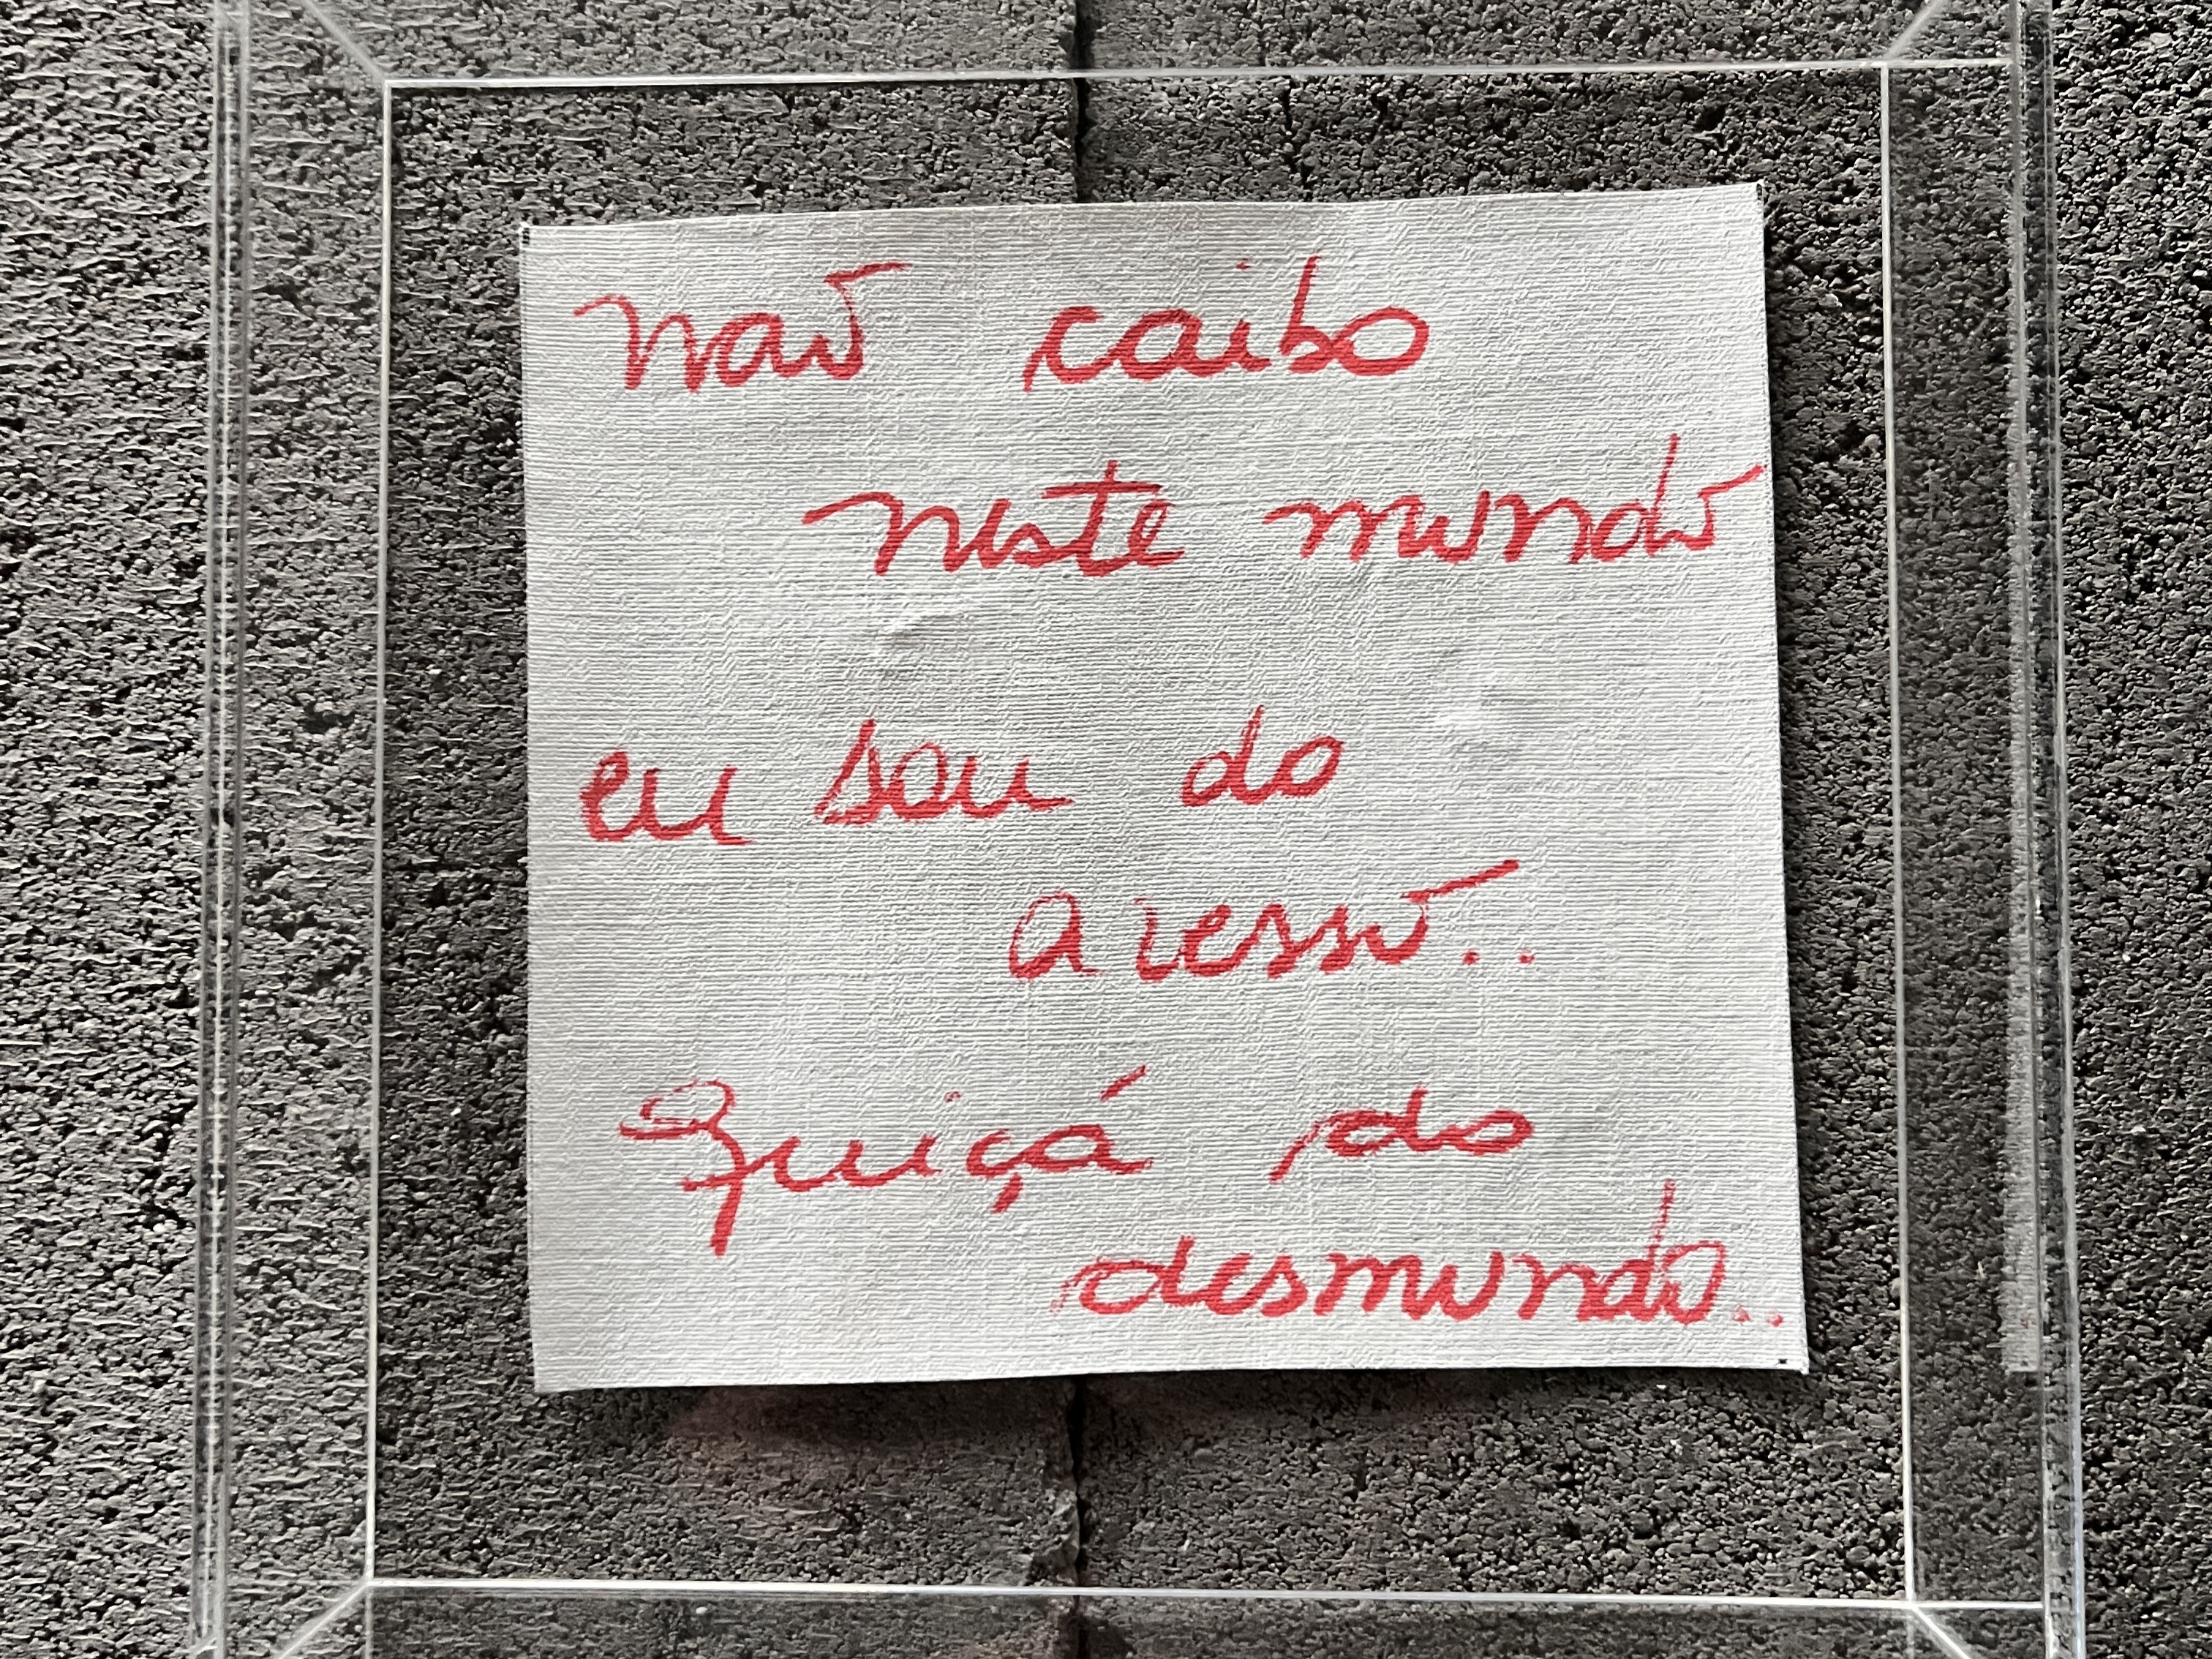 não caibo
neste mundo
eu sou do
avesso..
Quiçá do
desmundo..